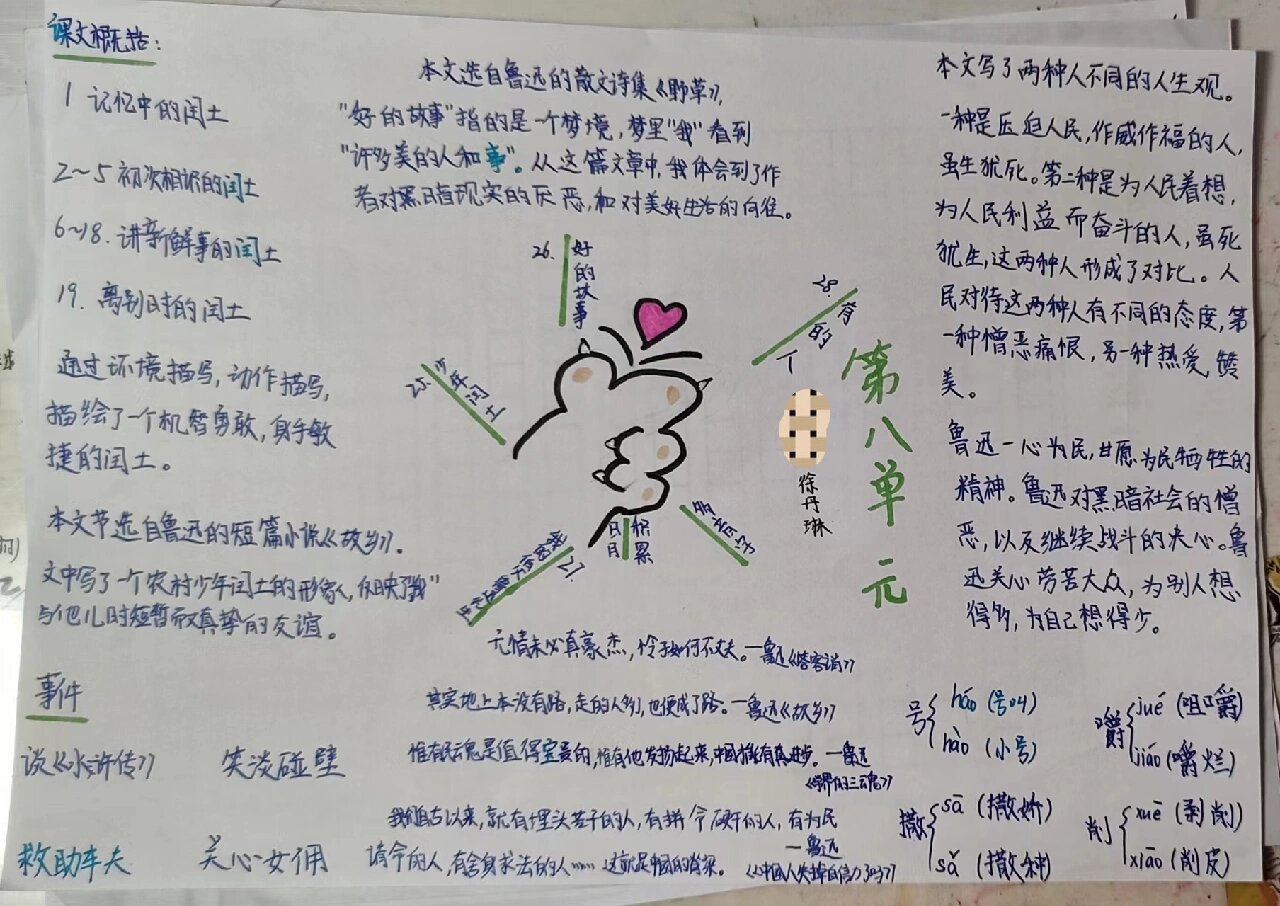 课文概括：
1 记忆中的闰土
2~5 初次相识的闰土
6~18. 讲新鲜事的闰土
19. 离别时的闰土
通过环境描写，动作描写，
描绘了一个机智勇敢，身手敏
捷的闰土。
本文节选自鲁迅的短篇小说《故乡》.
文中写了一个农村少年闰土的形象，反映了"我"
与他儿时短暂而又真挚的友谊。
事件
谈《水浒传》 笑谈碰壁
救助车夫 关心女佣
本文选自鲁迅的散文诗集《野草》,
"好的故事"指的是一个梦境，梦里"我"看到
"许多美的人和事"。从这篇文章中，我体会到了作
者对黑暗现实的厌恶，和对美好生活的向往。
26. 好的故事
25. 少年闰土
28. 有的人
27
日积月累
多音字
第八单元
徐丹琳
无情未必真豪杰，怜子如何不丈夫。一鲁迅《答客诮》
其实地上本没有路，走的人多了，也便成了路。一鲁迅《故乡》
惟有民魂是值得宝贵的，惟有他发扬起来，中国才有真进步。一鲁迅
《学界的三魂》
我们自古以来，就有埋头苦干的人，有拼命硬干的人，有为民
请命的人，有舍身求法的人……这就是中国的脊梁。
一鲁迅
《中国人失掉自信力了吗》
本文写了两种人不同的人生观。
一种是压迫人民，作威作福的人，
虽生犹死。第二种是为人民着想，
为人民利益而奋斗的人，虽死
犹生，这两种人形成了对比。人
民对待这两种人有不同的态度，第
一种憎恶痛恨，另一种热爱赞
美。
鲁迅一心为民，甘愿为民牺牲的
精神。鲁迅对黑暗社会的憎
恶，以及继续战斗的决心。鲁
迅关心劳苦大众，为别人想
得多，为自己想得少。
号 háo (号叫)
hào (小号)
嚼 jué (咀嚼)
jiáo (嚼烂)
撒 sā (撒娇)
sǎ (撒种)
削 xuē (剥削)
xiāo (削皮)